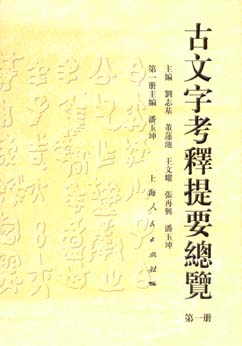 古文字考釋提要總覽
第一册
主編 劉志基 董蓮池 王文耀 張再興 潘玉坤
第一册主編 潘玉坤
上海人民出版社